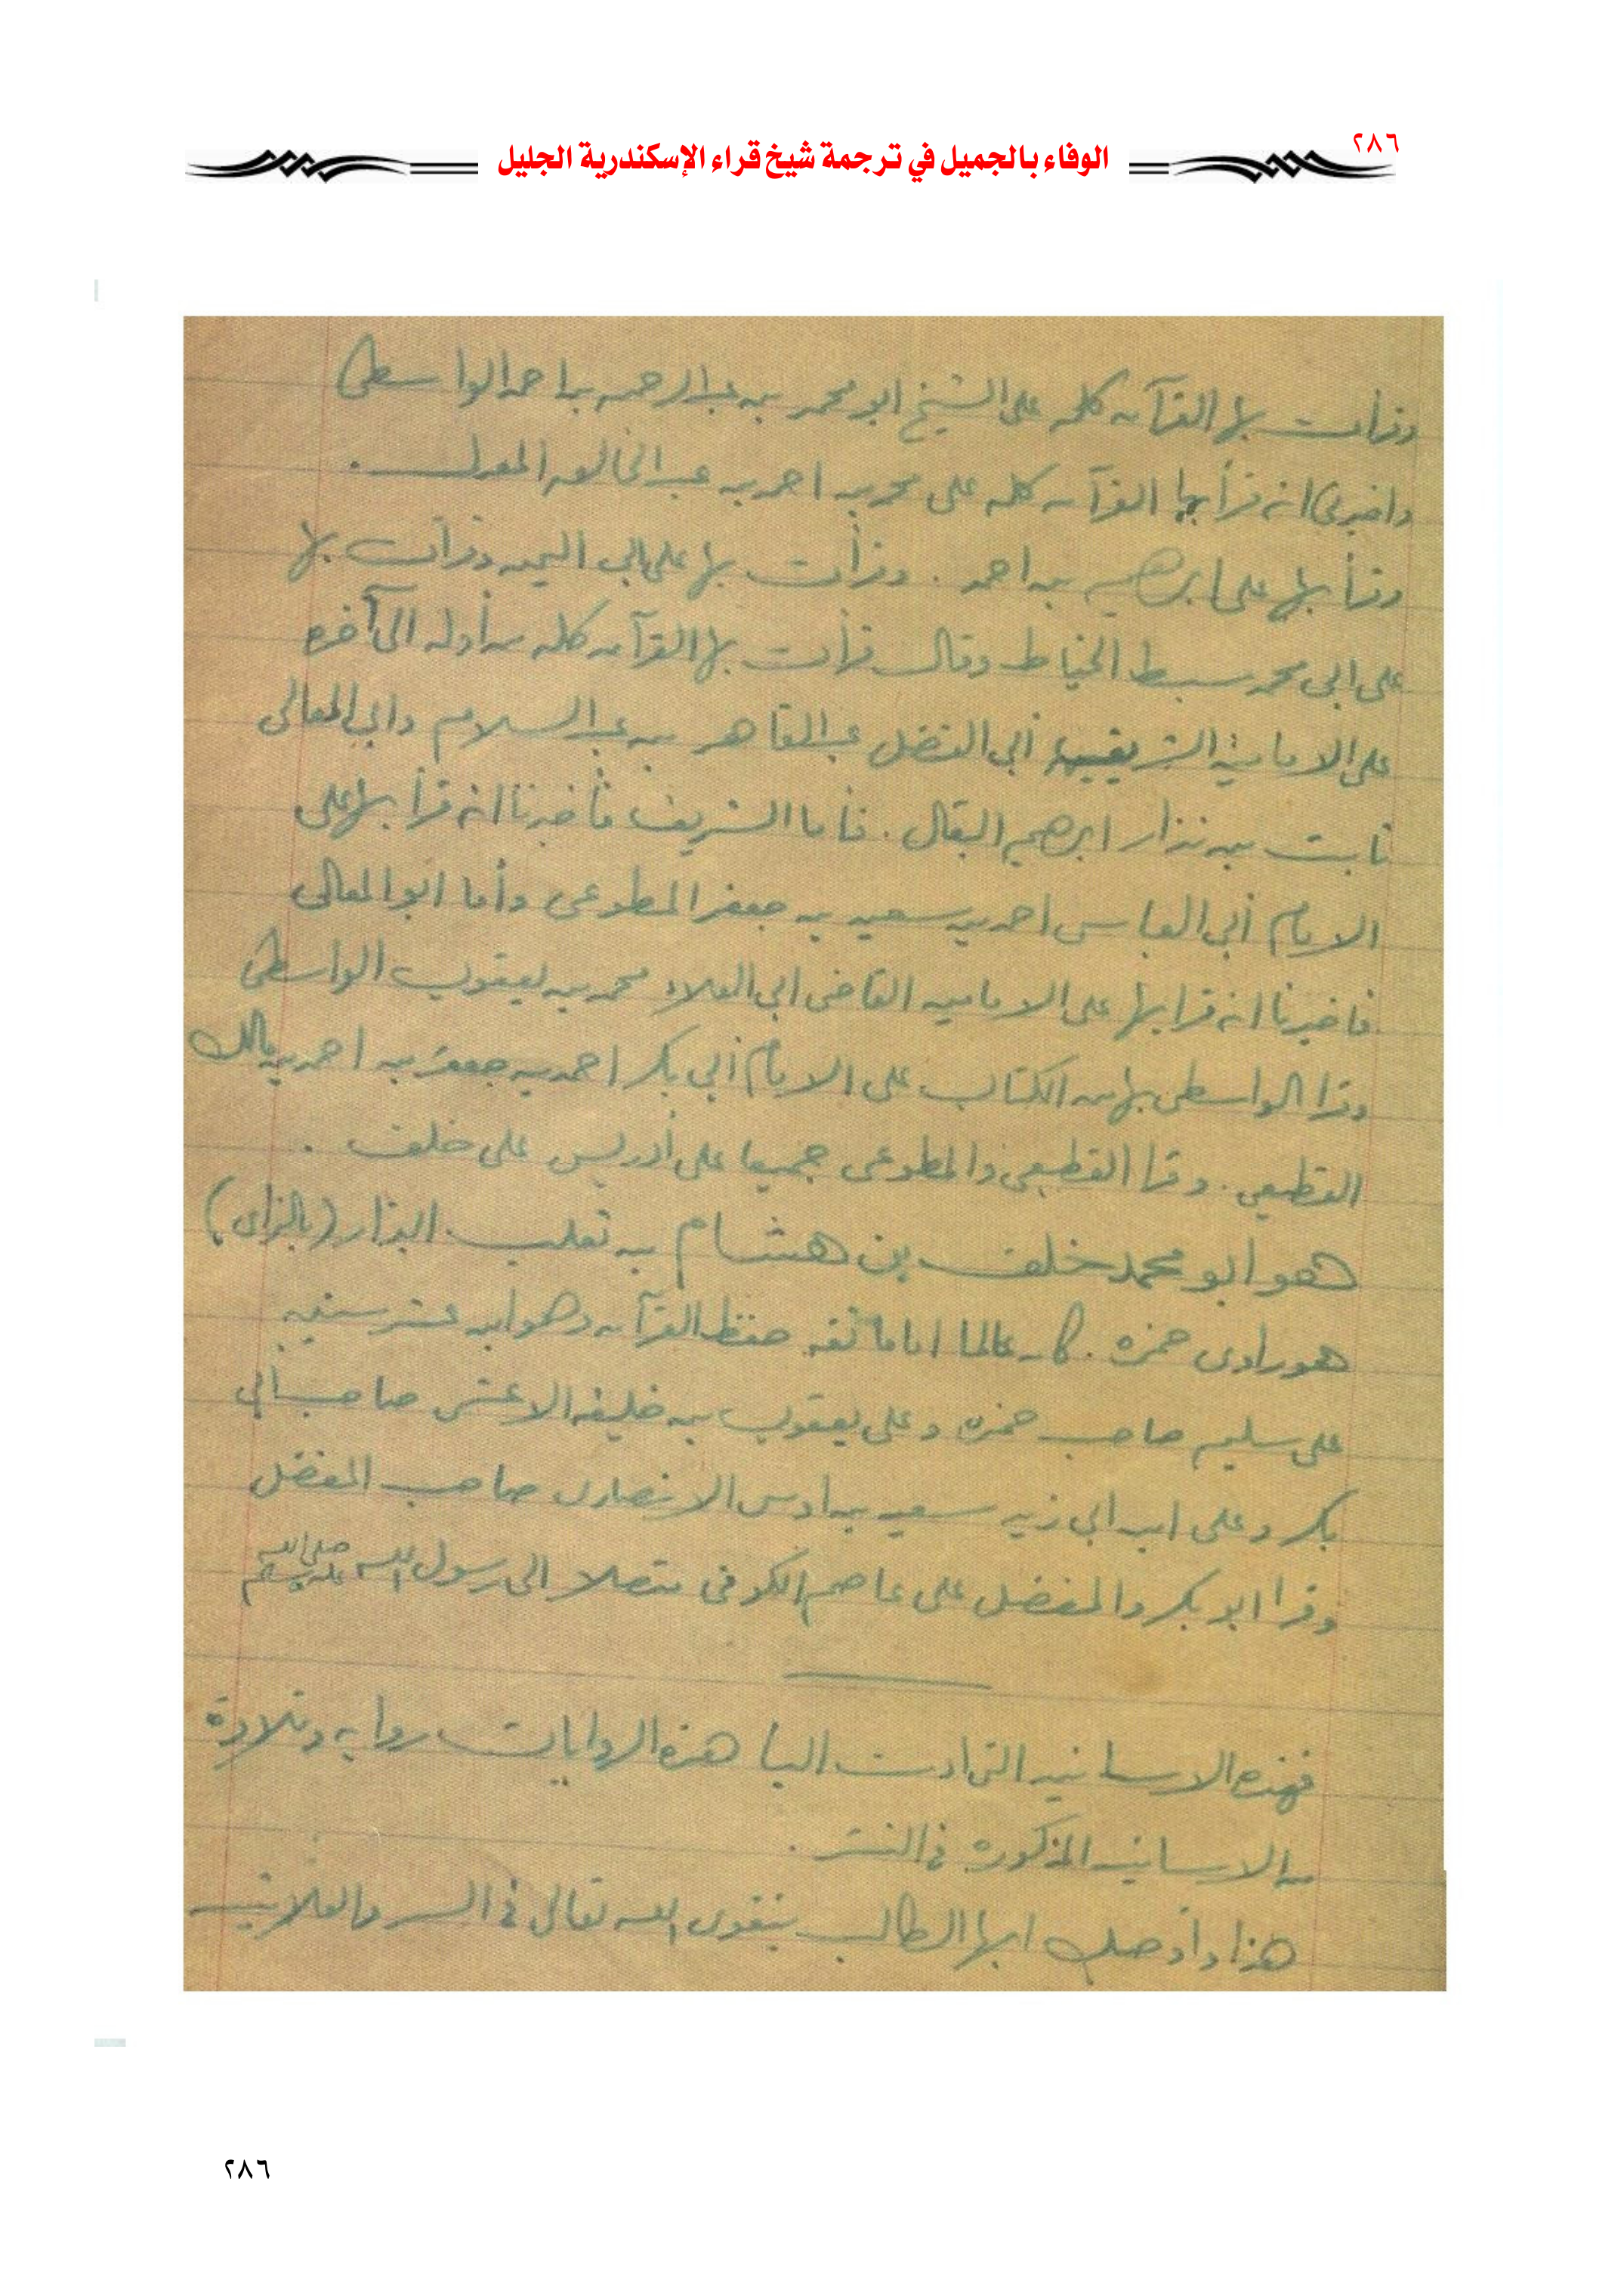 ٢٨٦
الوفاء بالجميل في ترجمة شيخ قراء الإسكندرية الجليل
وقرأت بها القرآن كله على الشيخ ابو محمد بن عبد الرحمن بن احمد الواسطى
واخبرنى انه قرأ بها القرآن كله على محمد بن احمد بن عبد الخالق المعدل .
وقرأ بها على ابرهيم بن احمد . وقرأت بها على ابى اليمن وقرأت بها
على ابى محمد سبط الخياط وقال قرأت بها القرآن كله من أوله الى آخره
على الامامين الشريفين أبى الفضل عبد القاهر بن عبد السلام وابى المعالى
ثابت بن بندار ابرهيم البقال . فأما الشريف فأخبرنا انه قرأ بها على
الامام أبى العباس احمد بن سعيد بن جعفر المطوعى وأما ابو المعالى
فاخبرنا انه قرا بها على الامامين القاضى ابى العلاء محمد بن يعقوب الواسطى
وقرا الواسطى بها من الكتاب على الامام أبى بكر احمد بن جعفر بن احمد بن مالك
القطيعى . وقرا القطيعى والمطوعى جميعا على أدريس على خلف .
هو ابو محمد خلف بن هشام بن ثعلب البزار (بالزاى)
هو راوى حمزه . كان عالما اماما ثقه حفظ القرآن وهو ابن عشر سنين
على سليم صاحب حمزه وعلى يعقوب بن خليفه الاعشى صاحب أبى
بكر وعلى ابن ابى زيد سعيد بن اوس الانصارى صاحب المفضل
وقرا ابو بكر والمفضل على عاصم الكوفى متصلا الى رسول الله صلى الله عليه وسلم
فهذه الاسانيد التى ادت الينا هذه الروايات روايه وتلاوة
من الاسانيد المذكوره فى النشر .
هذا وأوصيك ايها الطالب بتقوى الله تعالى فى السر والعلانيه
٢٨٦